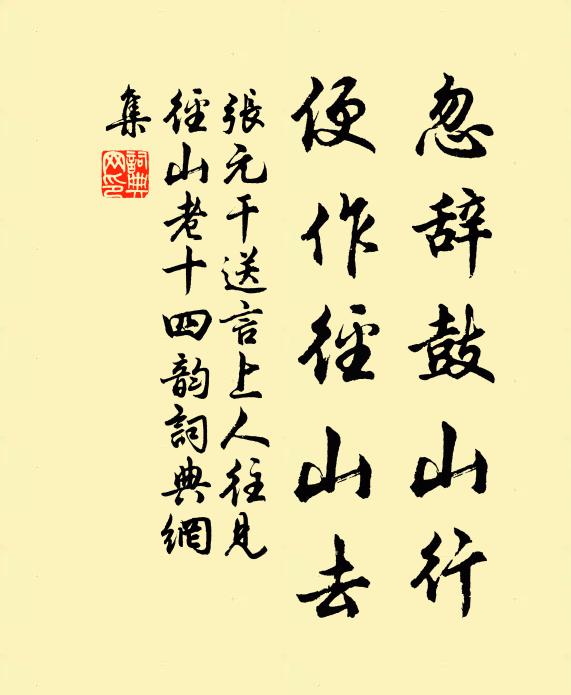 忽辞鼓山行
便作徑山去
張元干送言上人往見
徑山老十四韵詞典網
集
詞典网印